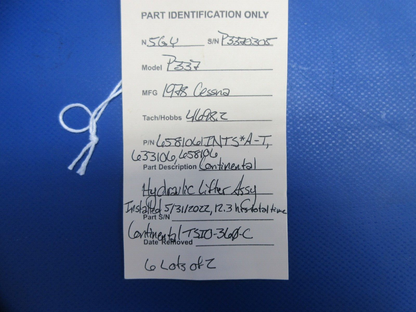 PART IDENTIFICATION ONLY
N 564 S/N P3370305
Model P337
MFG 1978 Cessna
Tach/Hobbs 4698.2
P/N 658106INTS*A-T,
653106, 658106
Part Description Continental
Hydraulic Lifter Assy
Installed 5/31/2022, 12.3 hrs total time
Part S/N
Continental TSIO-360-C
Date Removed
6 Lots of 2